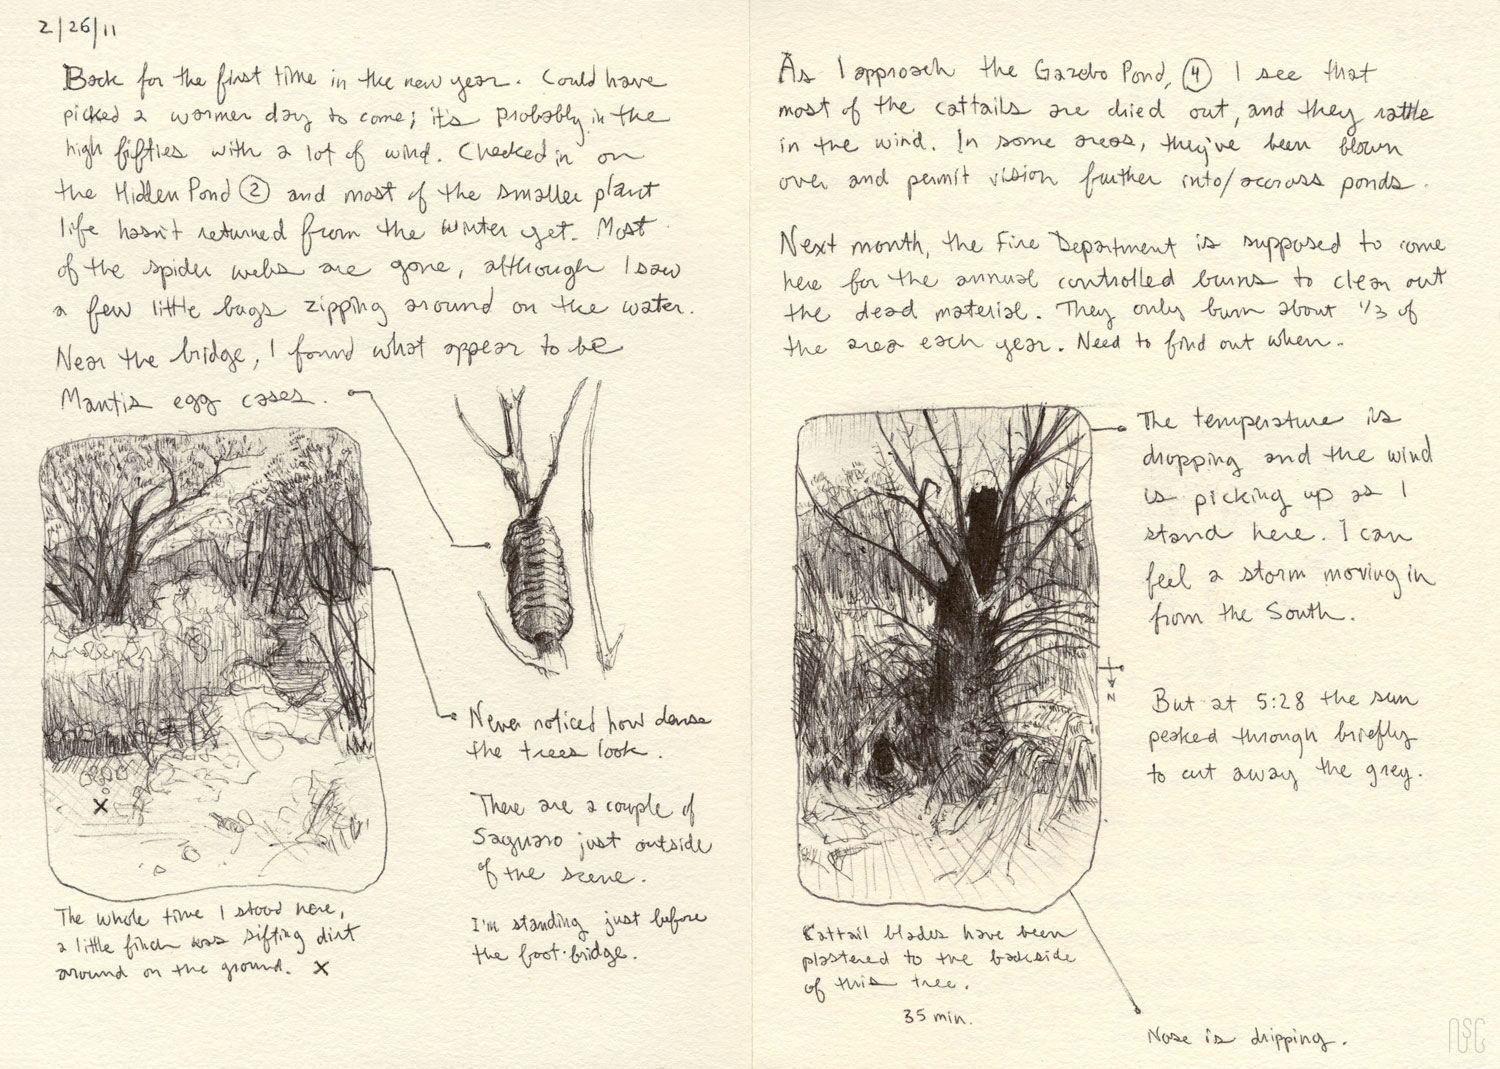 2/26/11
Back for the first time in the new year. Could have
picked a warmer day to come; it's probably in the
high fifties with a lot of wind. Checked in on
the Hidden Pond ② and most of the smaller plant
life hasn't returned from the winter yet. Most
of the spider webs are gone, although I saw
a few little bugs zipping around on the water.
Near the bridge, I found what appear to be
Mantis egg cases.
Never noticed how dense
the trees look.
There are a couple of
Saguaro just outside
of the scene.
I'm standing just before
the foot-bridge.
X
The whole time I stood here,
a little finch was sifting dirt
around on the ground. X
As I approach the Gazebo Pond, ④ I see that
most of the cattails are dried out, and they rattle
in the wind. In some areas, they've been blown
over and permit vision further into/accross ponds.
Next month, the Fire Department is supposed to come
here for the annual controlled burns to clear out
the dead material. They only burn about 1/3 of
the area each year. Need to find out when.
The temperature is
dropping and the wind
is picking up as I
stand here. I can
feel a storm moving in
from the South.
N
But at 5:28 the sun
peaked through briefly
to cut away the grey.
Cattail blades have been
plastered to the backside
of this tree.
35 min.
Nose is dripping.